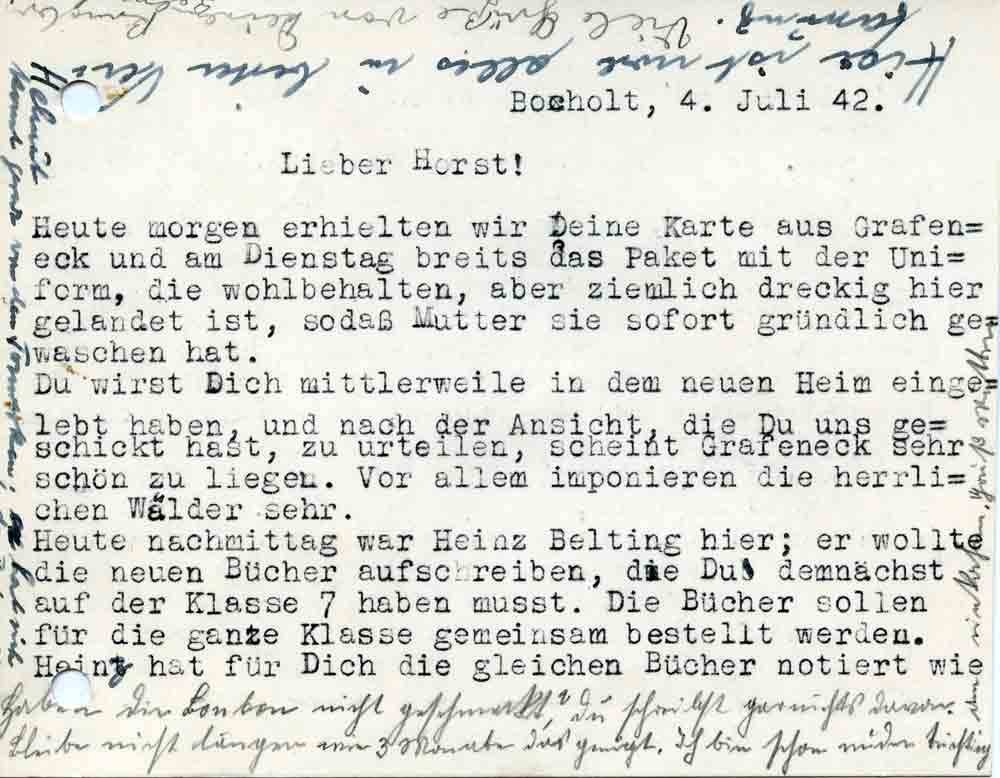 Viele Grüße von
Hier ist noch alles in bester
Bocholt, 4. Juli 42.
Lieber Horst!
Heute morgen erhielten wir Deine Karte aus Grafen=
eck und am Dienstag breits das Paket mit der Uni=
form, die wohlbehalten, aber ziemlich dreckig hier
gelandet ist, sodaß Mutter sie sofort gründlich ge=
waschen hat.
Du wirst Dich mittlerweile in dem neuen Heim einge=
lebt haben, und nach der Ansicht, die Du uns ge=
schickt hast, zu urteilen, scheint Grafeneck sehr
schön zu liegen. Vor allem imponieren die herrli=
chen Wälder sehr.
Heute nachmittag war Heinz Belting hier; er wollte
die neuen Bücher aufschreiben, die Du demnächst
auf der Klasse 7 haben musst. Die Bücher sollen
für die ganze Klasse gemeinsam bestellt werden.
Heinz hat für Dich die gleichen Bücher notiert wie
Haben die Bonbon nicht geschmeckt, du schreibst garnichts davon.
Bleibe nicht länger wie 3 Monate das genügt. Ich bin schon wieder tüchtig
Helmut